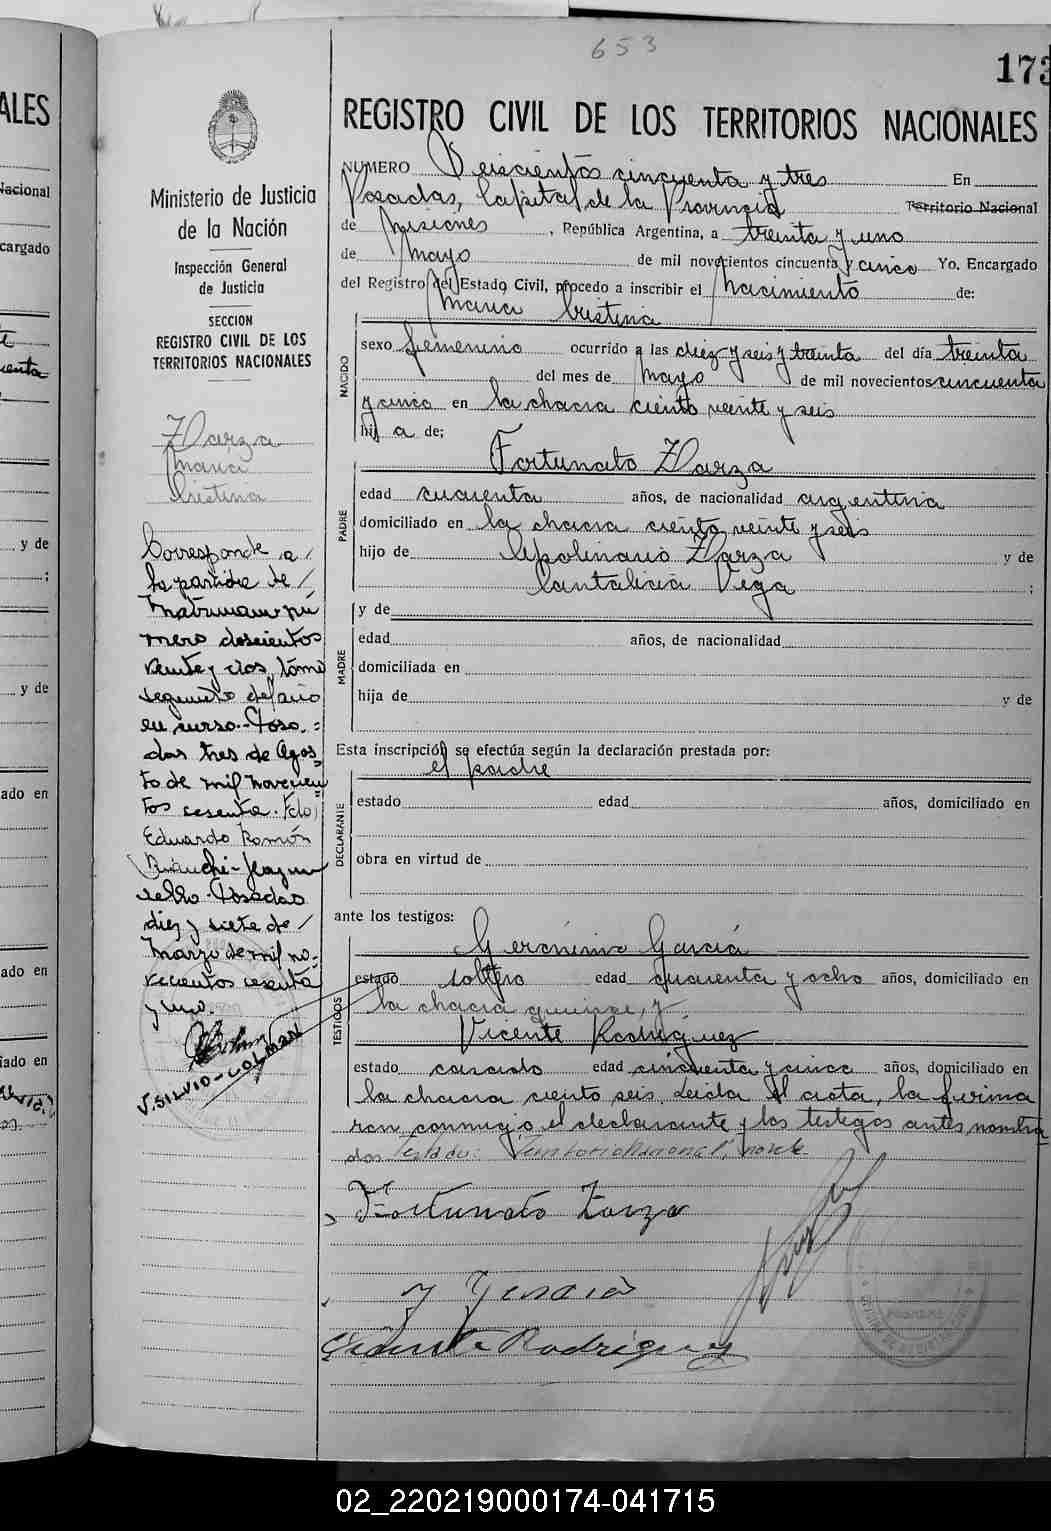 653
173
REGISTRO CIVIL DE LOS TERRITORIOS NACIONALES
NUMERO Seiscientos cincuenta y tres En
Posadas, Capital de la Provincia Territorio Nacional
de Misiones, República Argentina, a treinta y uno
de Mayo de mil novecientos cincuenta y cinco Yo, Encargado
del Registro del Estado Civil, procedo a inscribir el Nacimiento de:
Maria Cristina
NACIDO
sexo femenino ocurrido a las diez y seis y treinta del día treinta
del mes de Mayo de mil novecientos cincuenta
y cinco en la chacra ciento veinte y seis
hij a de;
Fortunato Zarza
PADRE
edad cuarenta años, de nacionalidad argentina
domiciliado en la chacra ciento veinte y seis
hijo de Apolinario Zarza y de
Cantalicia Vega ;
y de
MADRE
edad años, de nacionalidad
domiciliada en
hija de y de
Esta inscripción se efectúa según la declaración prestada por:
el padre
DECLARANTE
estado edad años, domiciliado en
obra en virtud de
ante los testigos:
Gerónimo García
TESTIGOS
estado soltero edad cuarenta y ocho años, domiciliado en
la chacra quince, y
Vicente Rodríguez
estado casado edad cincuenta y cinco años, domiciliado en
la chacra ciento seis. Leida el acta, la firma
ron conmigo el declarante y los testigos antes nombra
dos Testado: Territorio Nacional, no vale
Fortunato Zarza
Vicente Rodriguez
Ministerio de Justicia
de la Nación
Inspección General
de Justicia
SECCION
REGISTRO CIVIL DE LOS
TERRITORIOS NACIONALES
Zarza
Maria
Cristina
Corresponde a
la partida de
Matrimonio nu
mero doscientos
veinte y dos, tomo
segundo del año
en curso.- Posa-
das tres de Agos
to de mil novecien
tos sesenta. Fdo)
Eduardo Ramón
Bianchi - Hay un
sello. Posadas
diez y siete de
Marzo de mil no-
vecientos sesenta
y uno.
V. SILVIO-COLMAN
ALES
Nacional
cargado
y de
;
y de
ado en
ado en
iado en
02_220219000174-041715